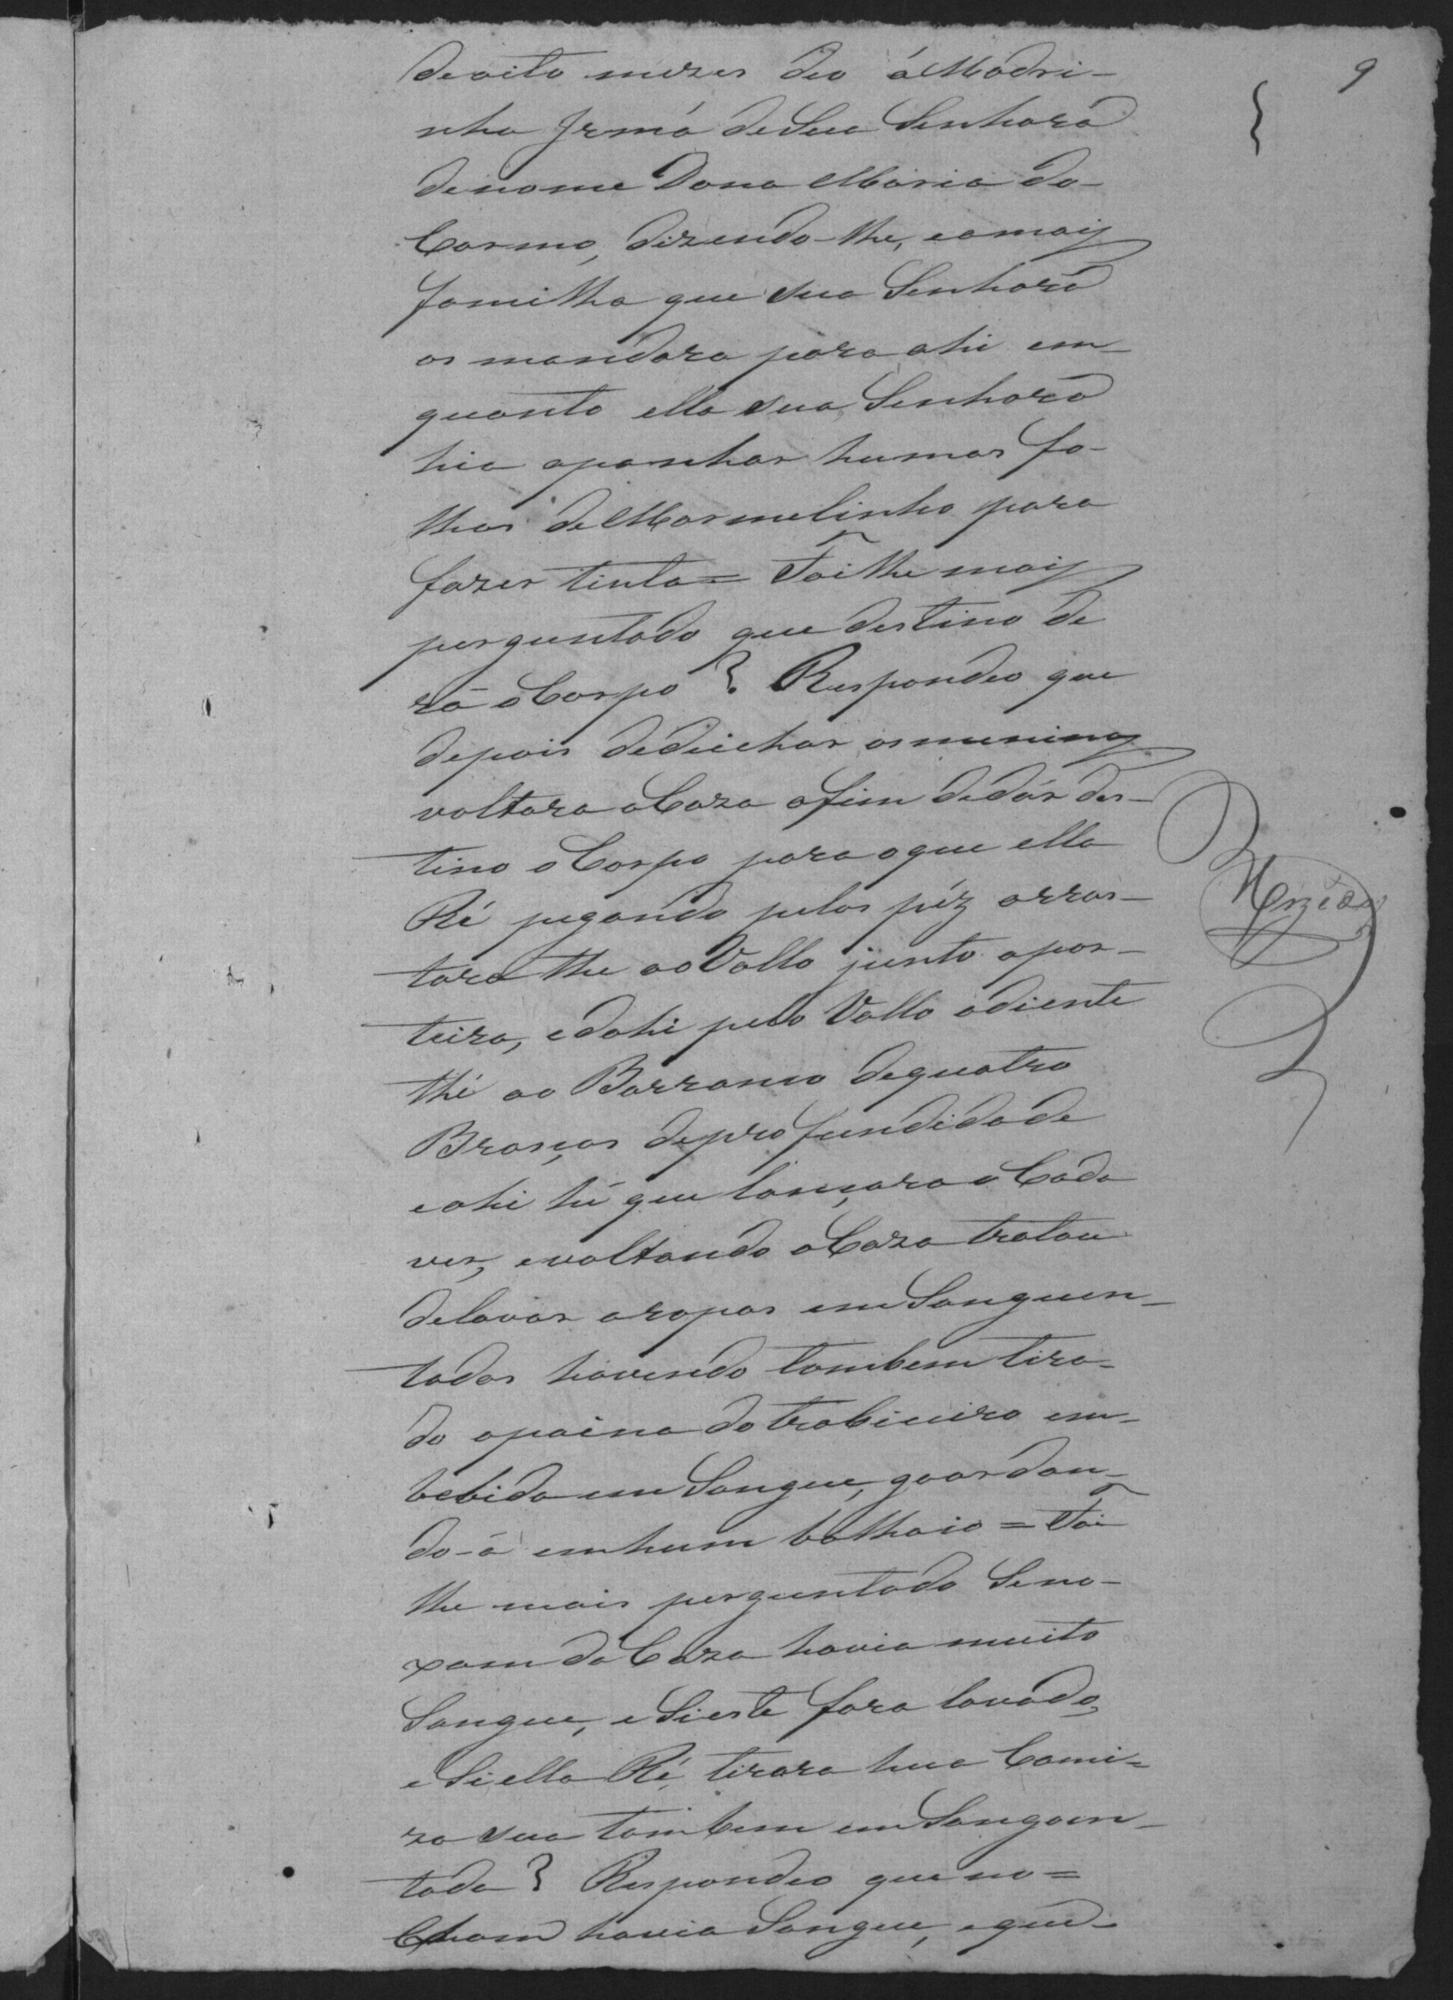 9
de oito mezes deo á Madri-
nha Irmã de Sua Senhora
de nome Dona Maria do
Carmo, dizendo-lhe, e a mais
familha que sua Senhora
os mandara para ahi em-
quanto ella sua Senhora
hia apanhar humas fo-
lhas de Marmelinho para
fazer tinta = Foi lhe mais
perguntado que destino de
rão o Corpo? Respondeo que
depois de deichar os meninos
voltara a Caza afim de dár des-
tino o Corpo para o que ella
Ré pegando pelos péz arras-
tara lhe ao Vallo junto a por-
teira, e dahi pelo Vallo adiente
thé ao Barranco de quatro
Braças de profundidade
e ahi hé que lançara o Cada
ver, e voltando a Caza tratou
de lavar a ropas em Sanguen-
tadas havendo tambem tira-
do a paina do trabiceiro em-
bebida em Sangue, goardan-
do-a em hum balhaio = Foi
lhe mais perguntado Se no
xam da Caza havia muito
Sangue, e Si este fora lavado,
e Si ella Ré, tirara hua Cami-
za sua tambem em Sangoen-
tada? Respondeo que no =
Cham havia Sangue, e que